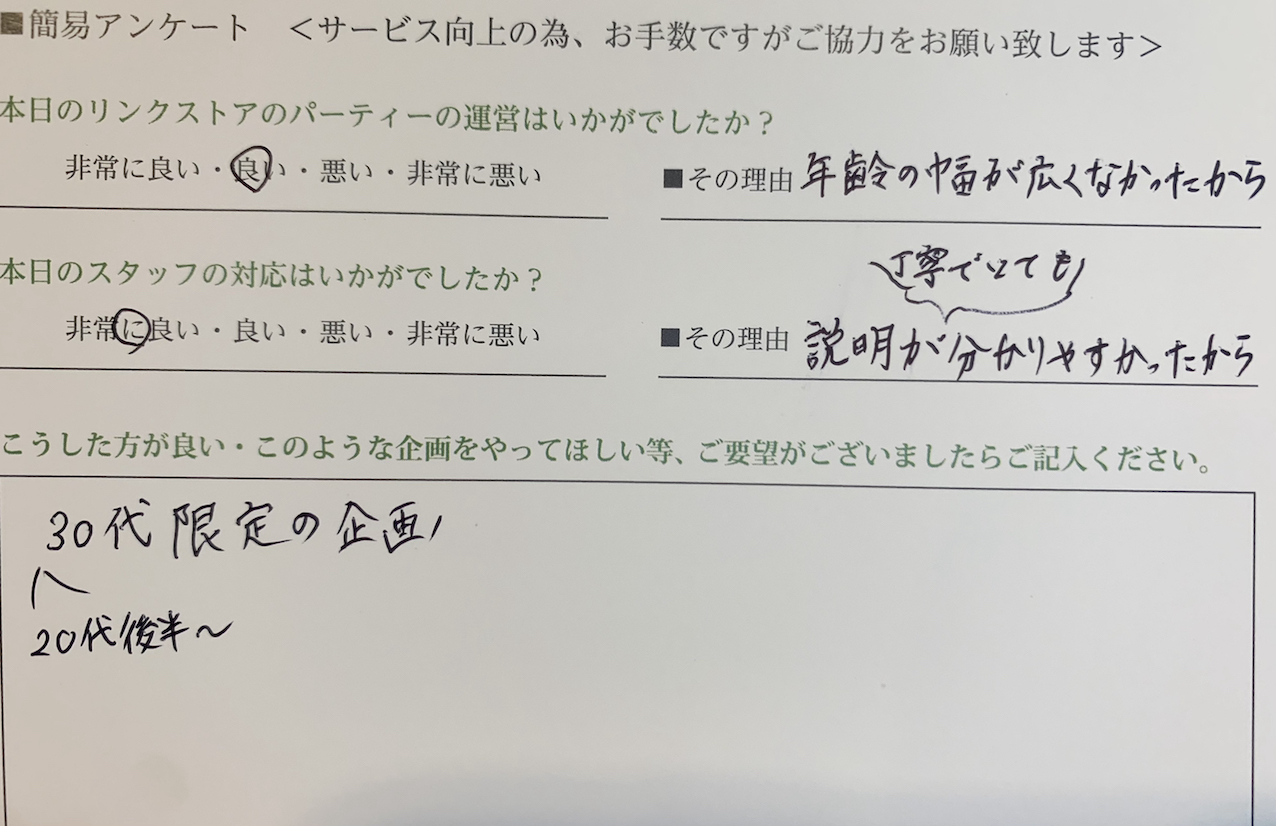 ■簡易アンケート　＜サービス向上の為、お手数ですがご協力をお願い致します＞
本日のリンクストアのパーティーの運営はいかがでしたか？
非常に良い・良い・悪い・非常に悪い
■その理由 年齢の幅が広くなかったから
本日のスタッフの対応はいかがでしたか？
非常に良い・良い・悪い・非常に悪い
丁寧でとても
■その理由 説明が分かりやすかったから
こうした方が良い・このような企画をやってほしい等、ご要望がございましたらご記入ください。
30代限定の企画
20代後半〜